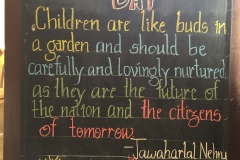 DAY
Children are like buds in
a garden and should be
carefully and lovingly nurtured
as they are the future of
the nation and the citizens
of tomorrow.
-Jawaharlal Nehru